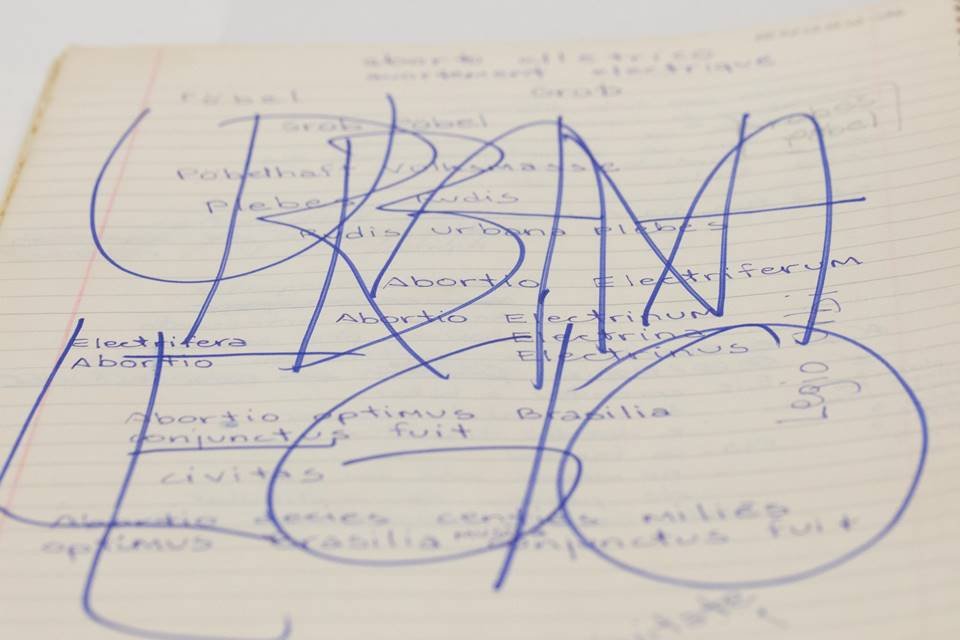 aborto elettrico
avortement electrique
Föbel Grob
Grob Pöbel
Pöbelhaft Volksmasse
Plebes Rudis
Rudis urbana plebes
Abortio Electriferum
Abortio Electrinum
Electrina
Electrinus
Electrifera
Abortio
Abortio optimus Brasilia
conjunctus fuit
civitas
Abortio decies centies milies
optimus Brasilia conjunctus fuit
URBANA
LEGIO
Legio